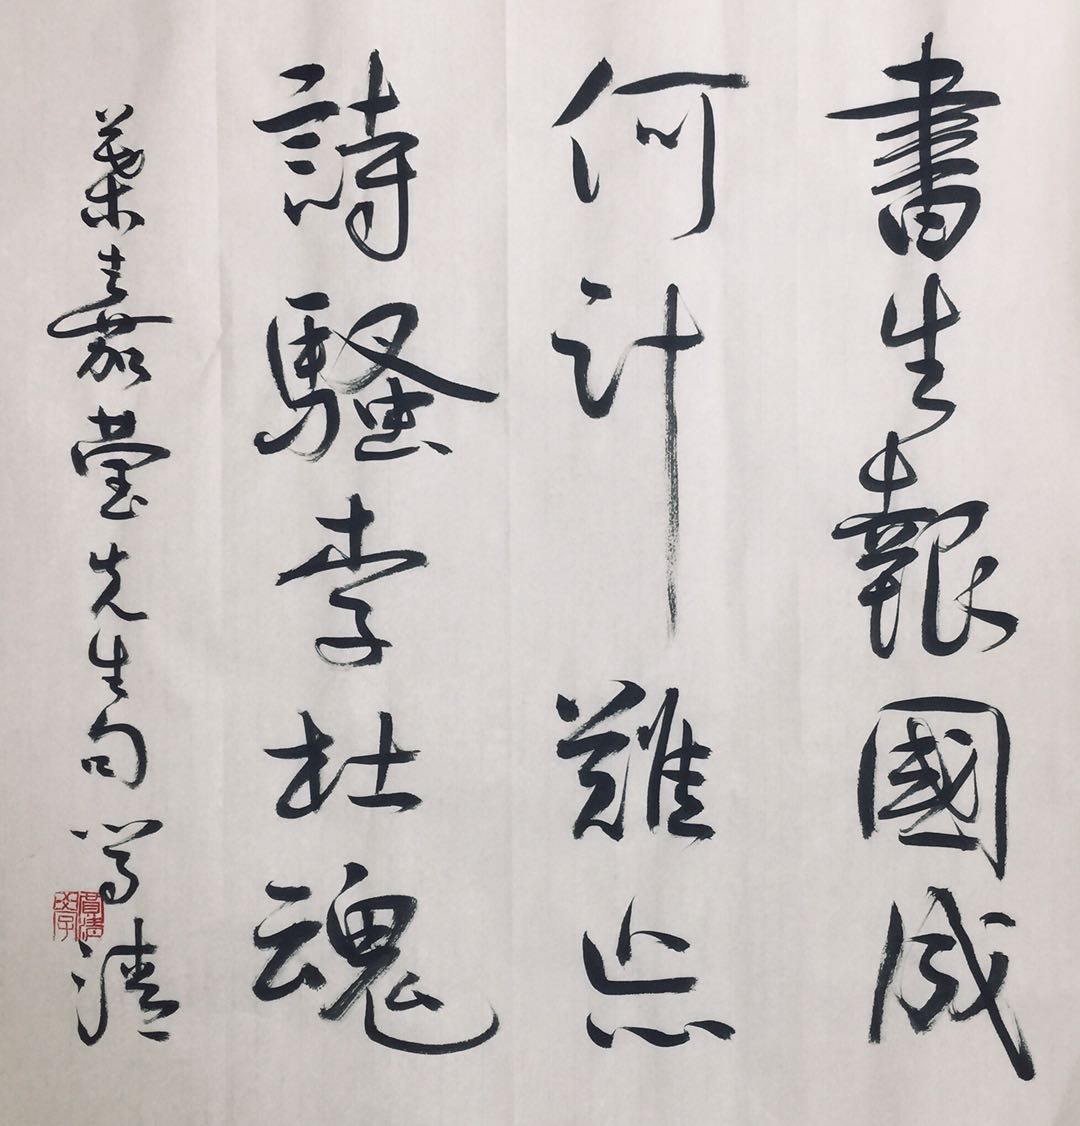 書生報國成
何計難忘
詩騷李杜魂
葉嘉瑩先生句